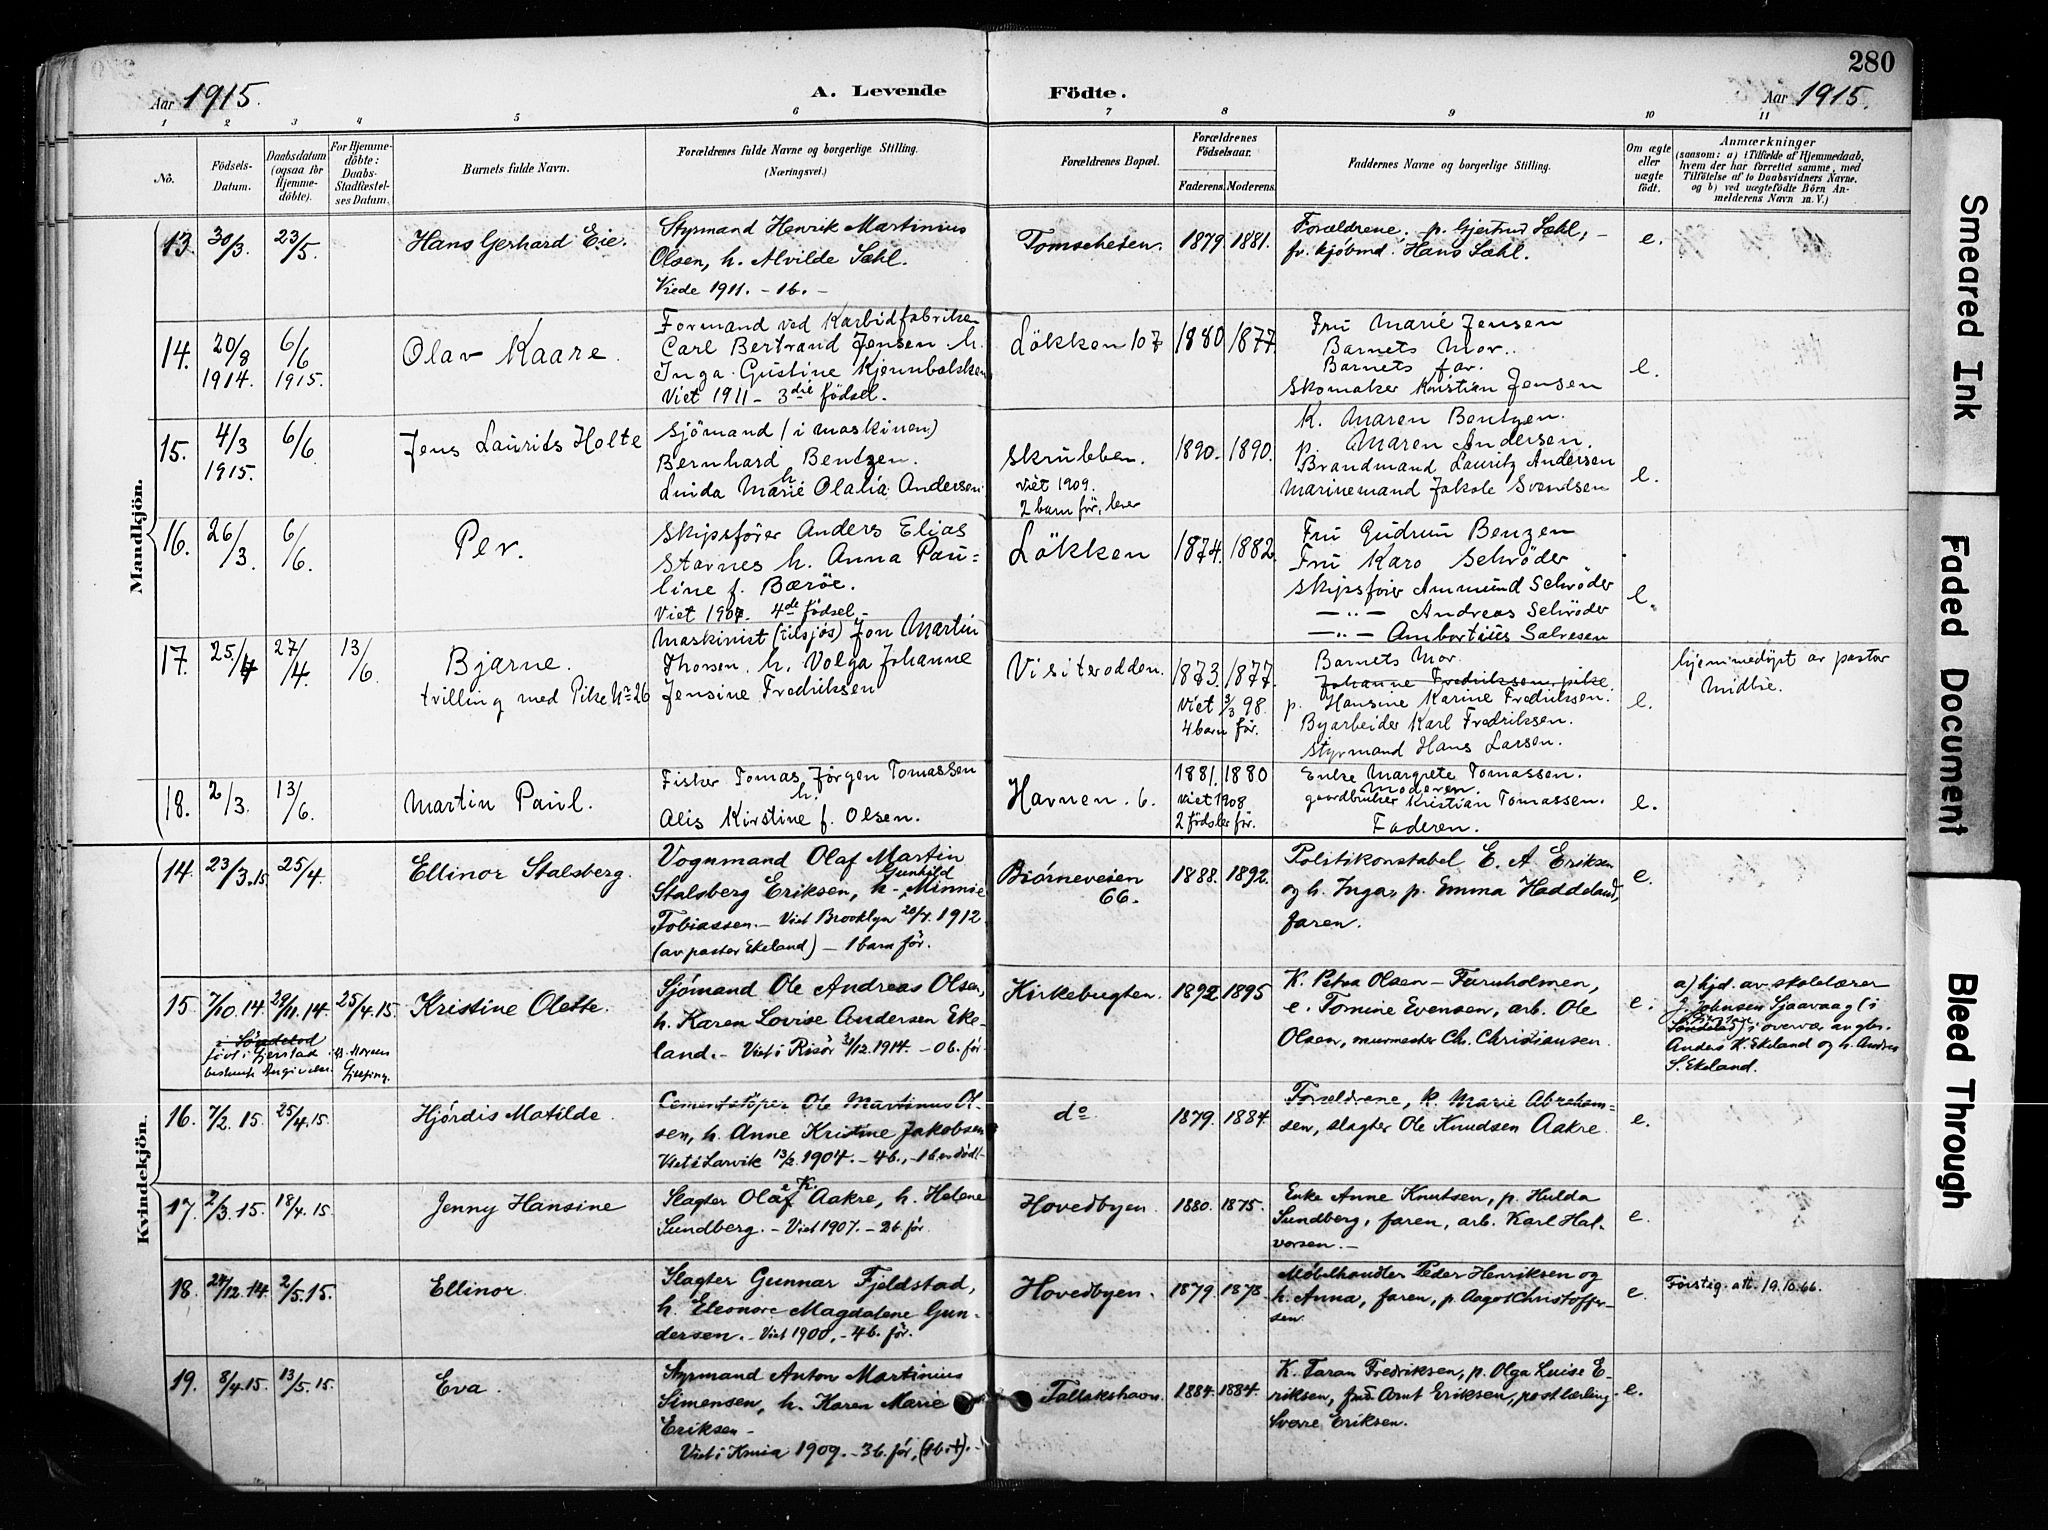 280
Aar 1915. A. Levende Födte. Aar 1915.
1 2 3 4 5 6 7 8 9 10 11
No. Födsels-Datum. Daabsdatum (ogsaa for Hjemmedöbte). For Hjemmedöbte: Daabs-Stadfæstelses Datum. Barnets fulde Navn. Forældrenes fulde Navne og borgerlige Stilling. (Næringsvei.) Forældrenes Bopæl. Forældrenes Födselsaar. Faderens. Moderens. Faddernes Navne og borgerlige Stilling. Om ægte eller uægte födt. Anmerkninger (saasom: a) i Tilfælde af Hjemmedaab, hvem der har forrettet samme, med Tilföielse af to Daabsvidners Navne, og b) ved uægtefödte Börn Anmelderens Navn m. V.)
Mandkjön.
13. 30/3. 23/5. Hans Gerhard Eie. Styrmand Henrik Martinius Tomscheien. 1879. 1881. Forældrene. p. Gjertrud Sæhl, - e.
Olsen, h. Alvilde Sæhl. fv. kjöbmd. Hans Sæhl.
Viede 1911. - 1 b. -
14. 20/8 1914. 6/6 1915. Olav Kaare. Formand ved Karbidfabriken Lökken 107 1880 1877. Fru Marie Jensen e.
Carl Bertrand Jensen h. Barnets Mor.
Inga Gustine Barnets far.
Viet 1911 - 3die födsel. Skomaker Kristian Jensen
15. 4/3 1915. 6/6 Jens Laurits Holte Sjömand (i maskinen) Skrubben. 1890. 1890. K. Maren Bentzen. e.
Bernhard Bentzen. viet 1909. p. Maren Andersen.
h. Linda Marie Olalia Andersen. 2 barn för, lever Brandmand Lauritz Andersen
Marinemand Jakole Svendsen
16. 26/3 6/6. Per. Skipsförer Anders Elias Lökken 1874. 1882. Fru Gudrun Benzen e.
Stavnes h. Anna Pau- Fru Karo Schröder
line f. Bæröe. Skipsförer Ammund Schröder
Viet 1907. 4de födsel - — " — Andreas Schröder
— " — Ambortius Salvesen
17. 25/4 27/4. 13/6. Bjarne. Maskinist (tilsjös) Jon Martin Visiterodden. 1873. 1877. Barnets Mor. e. hjemmedöpt av pastor
tvilling med Pike No 26 Thorsen. h. Volga Johanne viet 3/3 98. Johanne Fredriksen, pike Midbie.
Jensine Fredriksen 4 barn för. p. Hansine Karine Fredriksen.
Byarbeider Karl Fredriksen.
Styrmand Hans Larsen.
18. 2/3. 13/6. Martin Paul. Fisker Tomas Jörgen Tomassen Havnen. 6. 1881. 1880 Enke Margrete Tomassen. e.
h. viet 1908 Moderen.
Alis Kirstine f. Olsen. 2 födsler för. gaardbruker Kristian Tomassen.
Faderen.
Kvindekjön.
14. 23/3.15 25/4. Ellinor Stalsberg. Vognmand Olaf Martin Björneveien 66. 1888. 1892. Politikonstabel E. A. Eriksen e.
Stalsberg Eriksen, h. Gunhild Minnie og h. Inga, p. Emma Haddeland,
Tobiassen. - Viet Brooklyn 20/4. 1912 faren.
(av pastor Ekeland) - 1 barn för.
15 7/10.14 29/11.14 25/4.15 Kristine Olette. Sjömand Ole Andreas Olsen, Kirkebugten. 1892 1895 K. Petra Olsen - Furuholmen, e. a) hjd. av skolelærer
i Söndelod h. Karen Lovise Andersen Eke- e. Tomine Evensen, arb. Ole J. Johnsen Sjaavaag (i
födt i Gjerstad land. - Viet i Risör 31/12. 1914. - 0 b. för. Olsen, murmester Ch. Christiansen. Söndeled) i overvær av gbr.
Anders K. Ekeland og h. Andrea
S. Ekeland.
16. 7/2.15. 25/4.15. Hjördis Matilde. Cementstöper Ole Martinus Ol- do 1879. 1884. Forældrene, k. Marie Abraham- e.
sen, h. Anne Kristine Jakobsen sen, slagter Ole Knudsen Aakre.
Viet i Larvik 13/2. 1904. - 4 b., - 1 b. er död -
17. 2/3.15. 18/4.15. Jenny Hansine Slagter Olaf K. Aakre, h. Helene Hovedbyen. 1880. 1875. Enke Anne Knutsen, p. Hulda e.
Sundberg. - Viet 1907. - 2 b. för Sundberg, faren, arb. Karl Hal-
vorsen. -
18. 27/12.14. 2/5.15. Ellinor. Slagter Gunnar Fjeldstad, Hovedbyen. 1879. 1878. Møbelhandler Peder Henriksen og e. Førstig. att. 19.10.66.
h. Eleonore Magdalene Gun- h. Anna, faren, p. Aagot Christoffer-
dersen. - Viet 1900. - 4 b. för. sen.
19. 8/4.15. 13/5.15. Eva. Styrmand Anton Martinius Tallakshavn. 1884. 1884. K. Taran Fredriksen, p. Olga Luise E- e.
Simensen, h. Karen Marie riksen, frue Arnt Eriksen, postlærling
Eriksen - Sverre Eriksen.
Viet i Krnia 1909. - 3 b. för, (1 b. +). -
Smeared Ink
Faded Document
Bleed Through